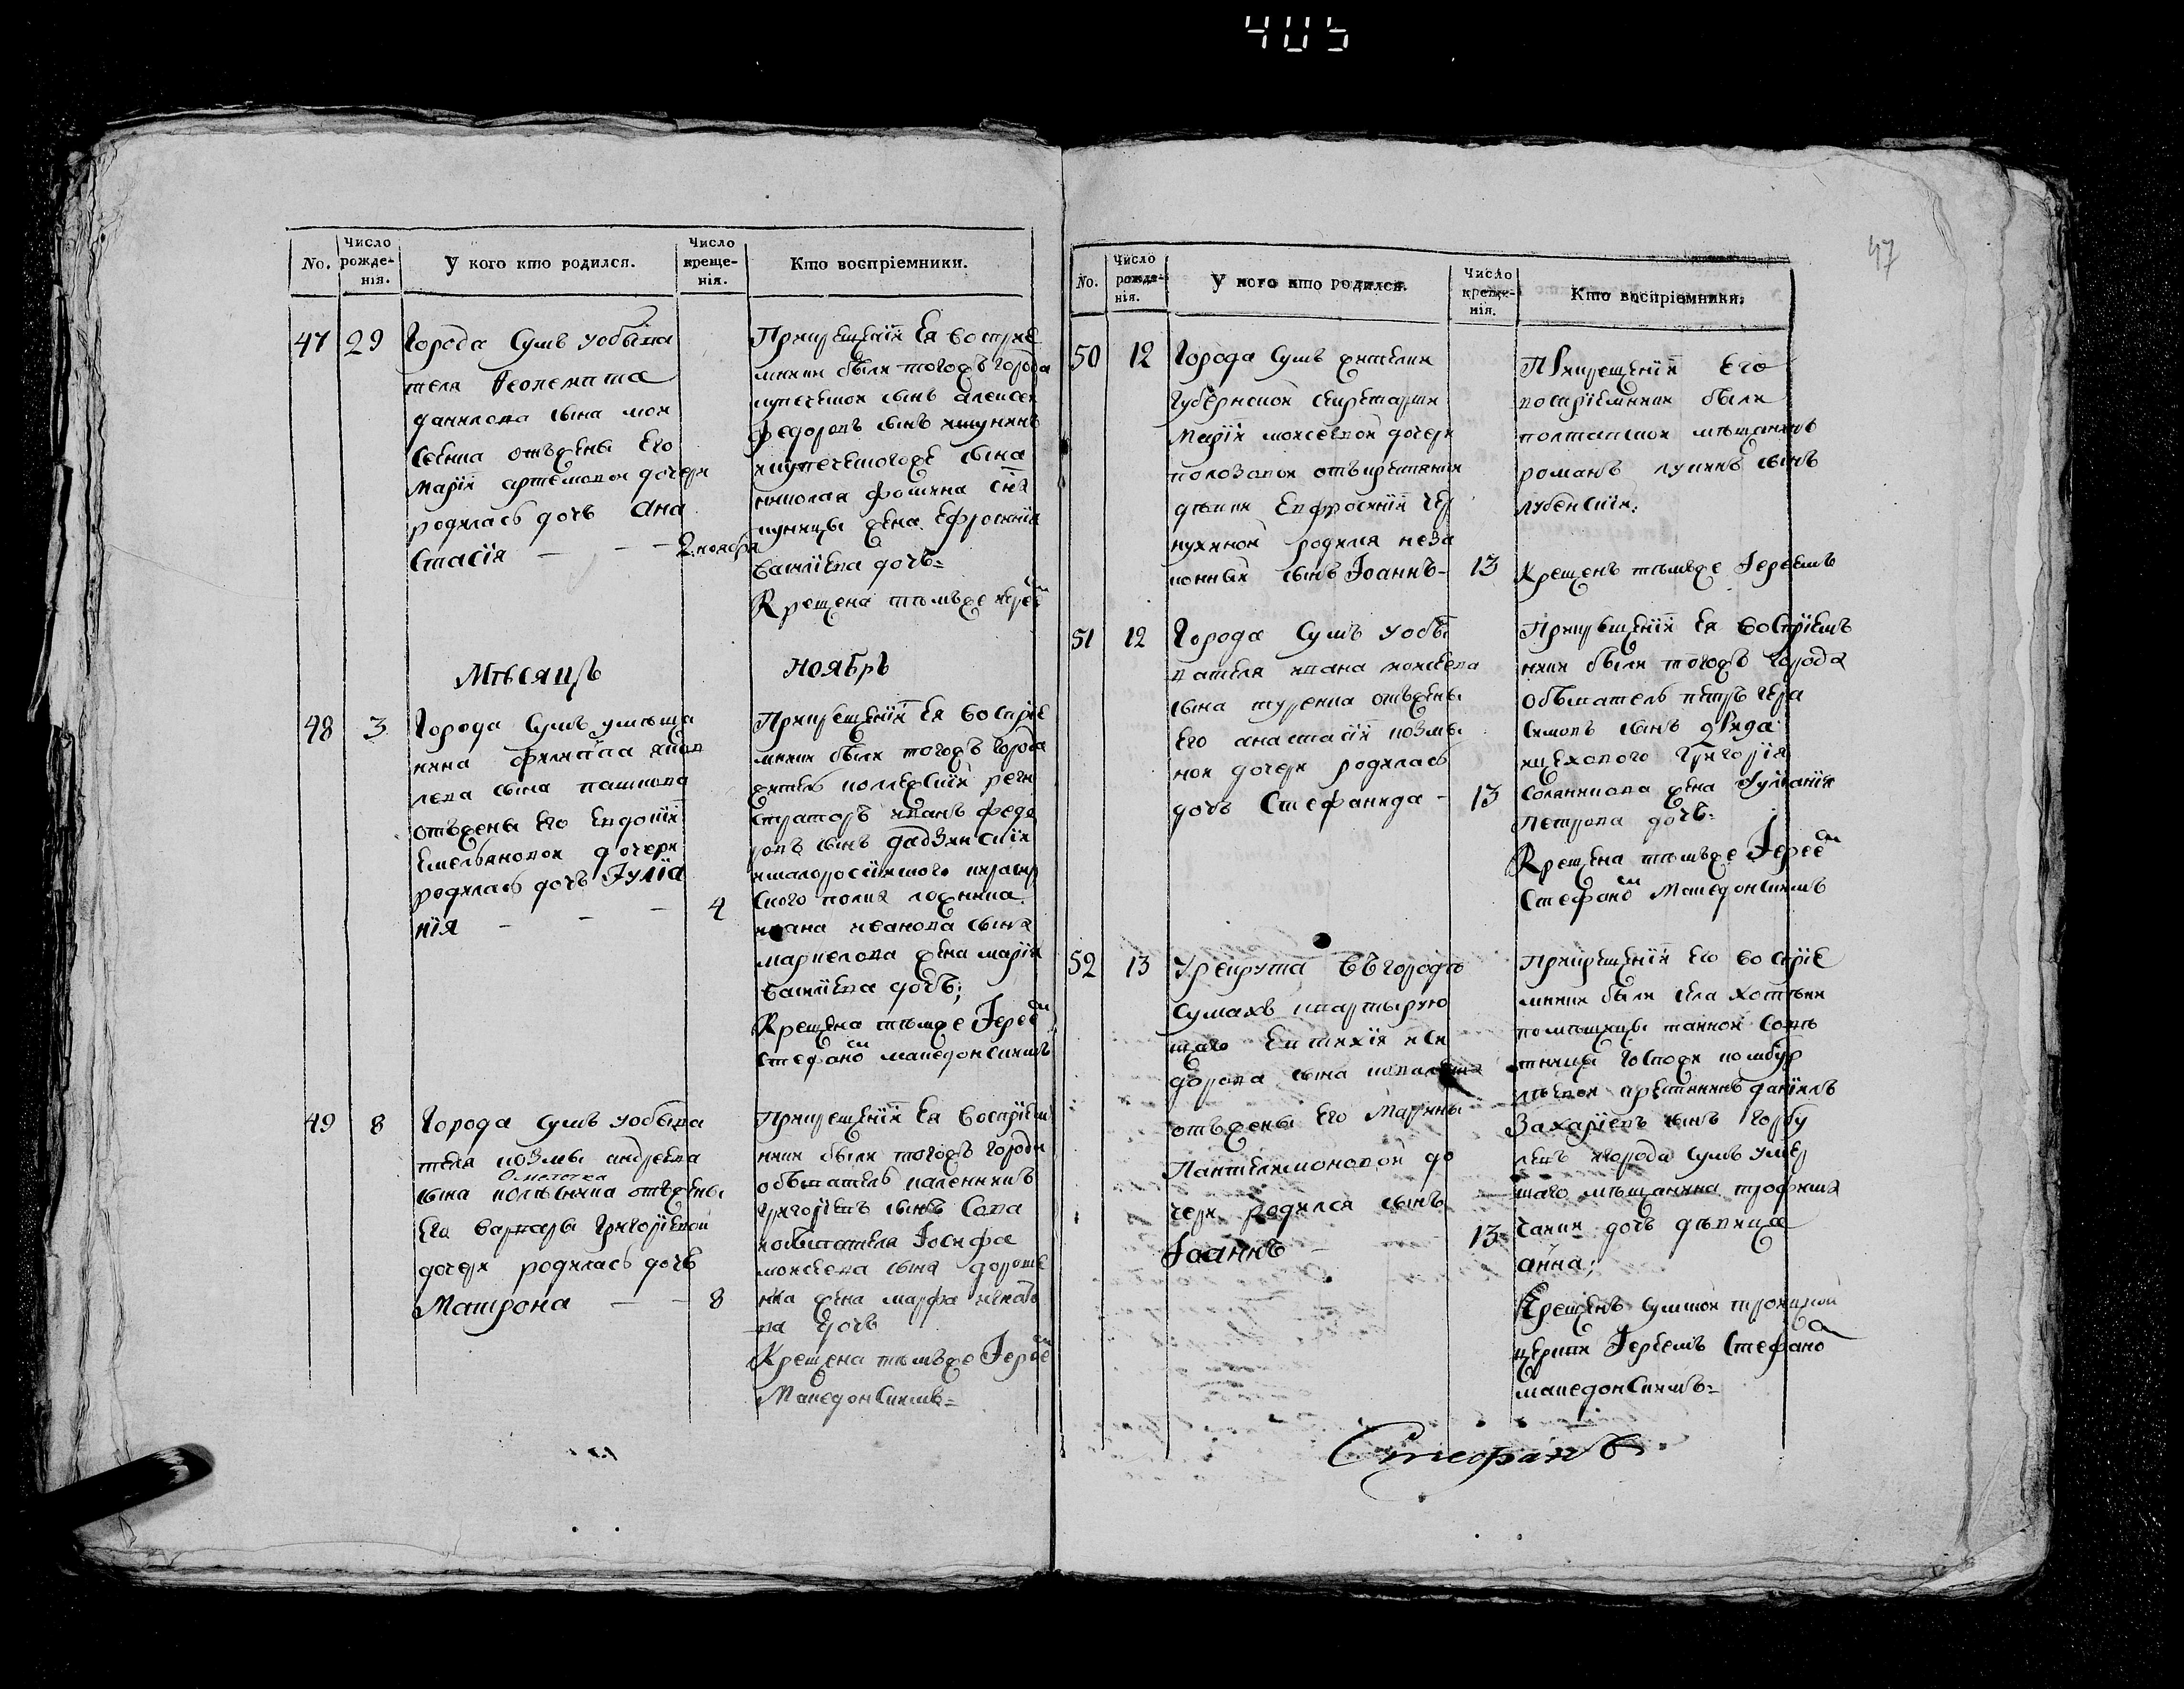 405
47
No.
Число рожденія.
У кого кто родился.
Число крещенія.
Кто воспріемники.
47 29
Города Сумъ уобыва
теля Феопемпта
данилова сына мои
сѣенка отъжены Его
Маріи артемовои дочери
родилась дочь Ана
стасія — — 2 ноября
Прикрещеніи Ея воспрiе
мники были тогожъ города
купеческои сынъ алексеи
федоровъ сынъ
икупеческогоже сына
николая фомина сна
жена Ефросинія
Василіева дочь=
Крещена тѣмъже иерее
Мѣсяцъ ноябрь
48 3
Города Сумъ умѣща
нина филипа яков
лева сына пашкова
отъжены Его Евдокіи
Емельяновои дочери
родилась дочь Іуліа
нія — — 4
Прикрещеніи Ея воспріе
мники были тогожъ города
житель коллежскіи реги
страторъ иванъ федо
ровъ сынъ
ималоросіискаго кирасир
ского полка
ивана иванова сына
маркелова жена марія
василіева дочь;
Крещена тѣмже Іереемъ
Стефаномъ македонскимъ
49 8
Города Сумъ уобыва
теля козмы андреева
сына отъжены
Его варвары Григоріевои
дочери родилась дочь
Матрона — — 8
Прикрещеніи Ея воспріем
ники были тогожъ города
обыватель каленникъ
григоріевъ сынъ Сова
иобывателя Іосифа
моисеева сына дороше
нка жена марфа
ва дочь
Крещена тѣмъже Іереемъ
Македонскимъ=
No.
Число рожденія.
У кого кто родился.
Число крещенія.
Кто воспріемники.
50 12
Города Сумъ жителки
Губернскои секретарши
Маріи моисеевои дочери
полозовои откретянки
дѣвки Евфросиніи Чер
нухинои родился неза
конныи сынъ Іоаннъ- 13
Прикрещеніи Его
воспріемники были
полтавскои мѣщанинъ
романъ лукинъ сынъ
лубенскіи;
Крещенъ тѣмже Іереемъ
51 12
Города Сумъ уобы
вателя ивана моисеева
сына туренка отъжены
Его анастасіи козми
нои дочери родилась
дочь Стефанида - 13
Прикрещеніи Ея воспріем
ники были тогожъ города
обыватель петръ гера
симовъ сынъ
ицехового Григорія
Солянникова жена Іуліанія
петрова дочь=
Крещена тѣмъже Іереемъ
Стефаномъ Македонскимъ
52 13
Урекрута въгородѣ
Сумахъ квартирую
щаго Евтихія иси
дорова сына
отъжены Его Марины
Пантелимоновои до
чери родился сынъ
Іоаннъ — 13
Прикрещеніи Его воспріе
мники были села хотѣни
помѣщицы таинои Совѣ
тницы Госпожи
крестянинъ даніилъ
Захаріевъ сынъ Горбу
ленъ игорода Сумъ умер
шаго мѣщанина трофима
дочь дѣвица
анна;
Крещенъ сумскои троицкои
церкви Іереемъ Стефаномъ
македонскимъ=
Стефанъ